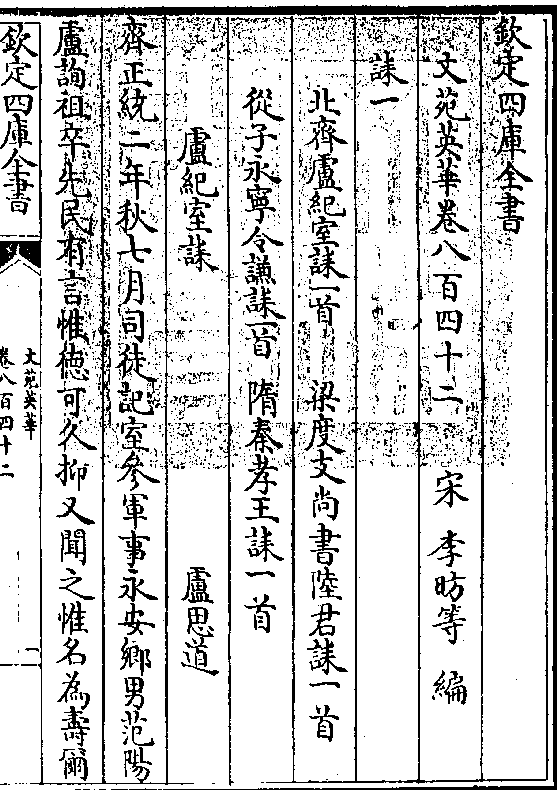 欽定四庫全書
文苑英華卷八百四十二　宋 李昉等 編
誄一
北齊盧紀室誄一首　梁度支尚書陸君誄一首
從子永寧令謙誄一首　隋秦孝王誄一首
盧紀室誄　盧思道
齊正統二年秋七月司徒記室參軍事永安鄉男范陽
盧詢祖卒先民有言惟徳可久抑又聞之惟名為壽爾
欽定四庫全書
文苑英華
卷八百四十二
一